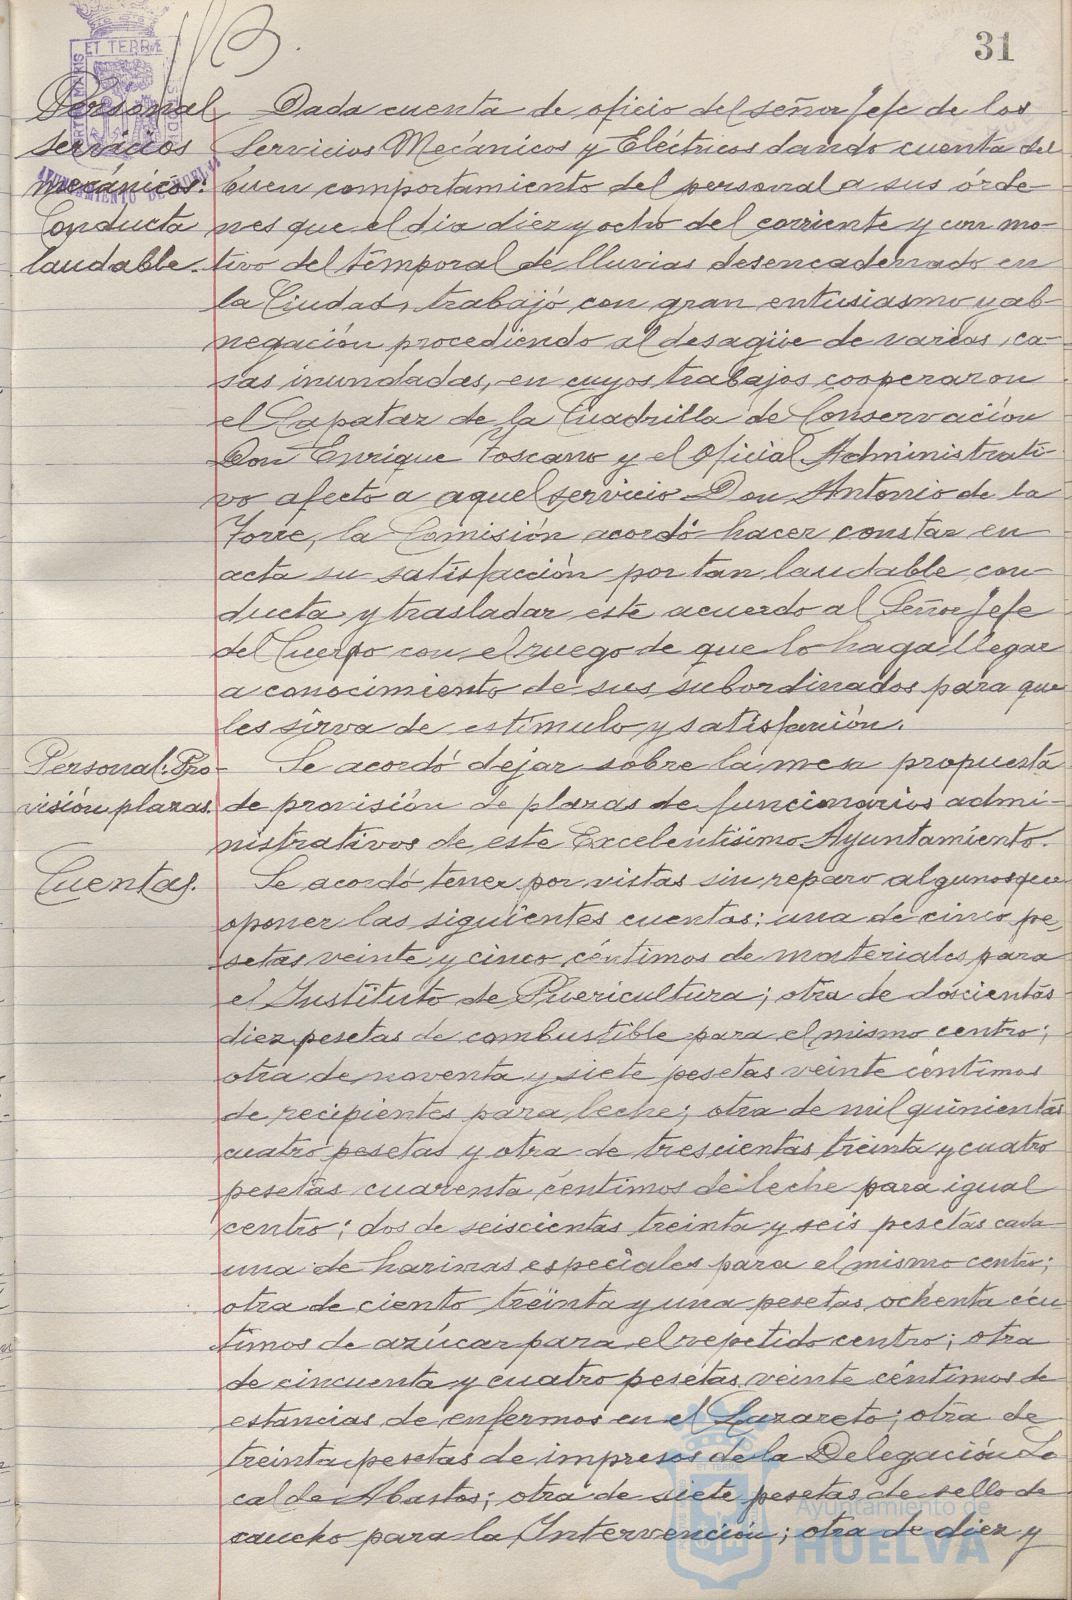 31
Personal
servicios
mecánicos:
Conducta
laudable.
Dada cuenta de oficio del señor Jefe de los
Servicios Mecánicos y Eléctricos dando cuenta del
buen comportamiento del personal a sus órde
nes que el dia diez y ocho del corriente y con mo-
tivo del temporal de lluvias desencadenado en
la Ciudad, trabajó con gran entusiasmo y ab-
negación procediendo al desagüe de varias ca-
sas inundadas, en cuyos trabajos cooperaron
el Capataz de la Cuadrilla de Conservación
Don Enrique Toscano y el Oficial Administrati-
vo afecto a aquel servicio Don Antonio de la
Torre, la Comisión acordó hacer constar en
acta su satisfacción por tan laudable con-
ducta y trasladar este acuerdo al Señor Jefe
del Cuerpo con el ruego de que lo haga llegar
a conocimiento de sus subordinados para que
les sirva de estímulo y satisfación.
Personal: Pro-
visión plazas.
Se acordó dejar sobre la mesa propuesta
de provisión de plazas de funcionarios admi-
nistrativos de este Excelentísimo Ayuntamiento.
Cuentas.
Se acordó tener por vistas sin reparo alguno que
oponer las siguientes cuentas: una de cinco pe-
setas veinte y cinco céntimos de materiales para
el Instituto de Puericultura; otra de doscientas
diez pesetas de combustible para el mismo centro;
otra de noventa y siete pesetas veinte céntimos
de recipientes para leche; otra de mil quinientas
cuatro pesetas y otra de trescientas treinta y cuatro
pesetas cuarenta céntimos de leche para igual
centro; dos de seiscientas treinta y seis pesetas cada
una de harinas especiales para el mismo centro;
otra de ciento treinta y una pesetas ochenta cén
timos de azúcar para el repetido centro; otra
de cincuenta y cuatro pesetas veinte céntimos de
estancias de enfermos en el Lazareto; otra de
treinta pesetas de impresos de la Delegación Lo
cal de Abastos; otra de siete pesetas de sello de
caucho para la Intervención; otra de diez y
Ayuntamiento de
HUELVA